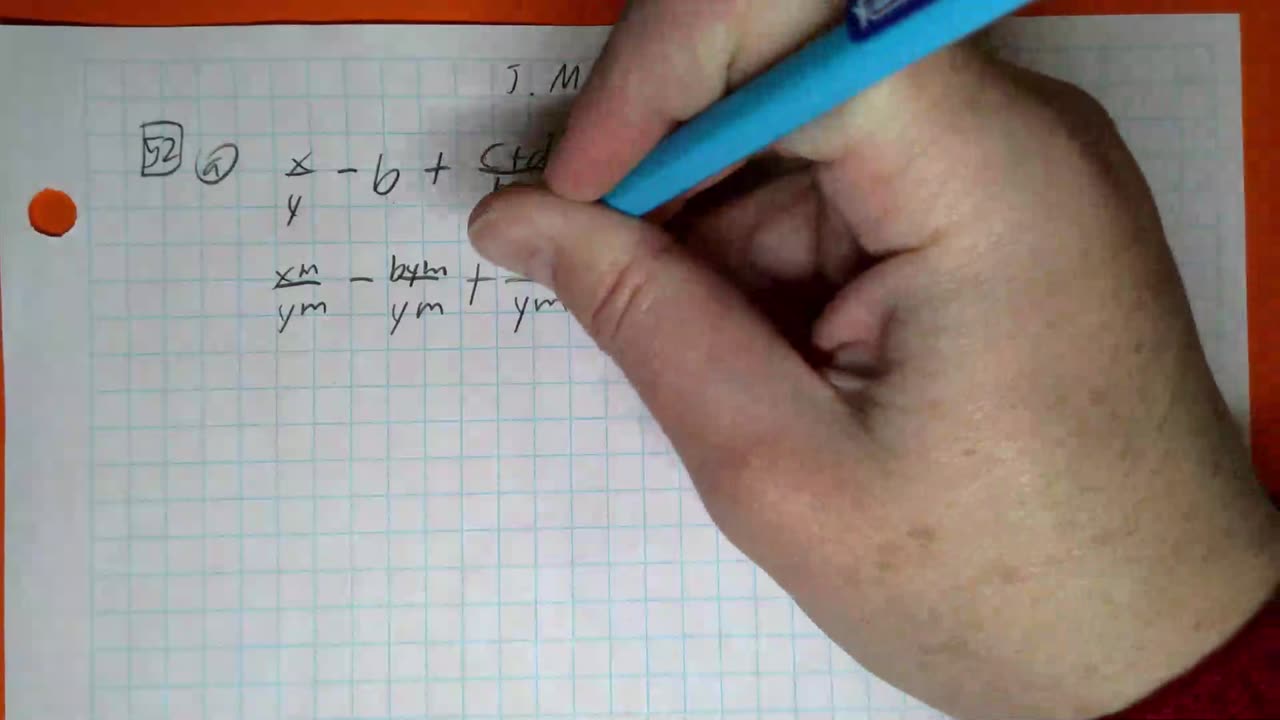 J. M
52 a x/y - b + c+d
xm/ym - bym/ym + /ym